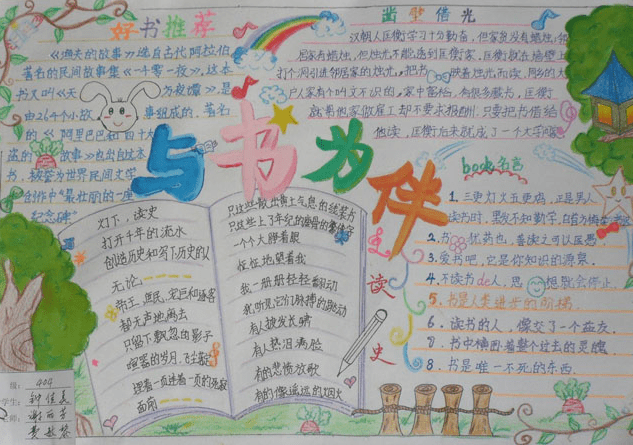 好书推荐
《渔夫的故事》选自古代阿拉伯
著名的民间故事集《一千零一夜》,这本
书又叫《天方夜谭》,是
由264个小故事组成的,著名
的《阿里巴巴和四十大
盗的故事》也出自这本
书,被誉为世界民间文学
创作中"最壮丽的一座
纪念碑"
凿壁借光
汉朝人匡衡学习十分勤奋,但家贫没有蜡烛,邻
居家有蜡烛,但烛光不能透到匡家,匡衡就在墙壁上
打个洞引进邻居家的烛光,把书映着烛光而读,同乡的大
户人家有个叫文不识的,家中富裕,有很多藏书,匡衡
就易他家做雇工却不要求报酬,只要把书借给
他读,匡衡后来就成了一个大学
与书为伴
灯下,读史
打开千年的流水
创造历史和写下历史的人
无论
帝王、庶民、宠臣和逐客
都无声地离去
只留下飘忽的影子
喧嚣的岁月,飞尘
埋着一页连着一页的
面前
只这些散出黄土气息的线装书
只这些上了年纪的
一个大睁着眼
怔怔地望着我
我一册册轻轻翻动
我听见它们脉搏的跳动
有人披发长啸
有人热泪满脸
有的悲愤放歌
有的像遥远的烟火
读史
book名言
1.三更灯火五更鸡,正是男人
读书时,黑发不知勤学早,白首方悔读书迟
2.书犹药也,善读之可以医愚
3.爱书吧,它是你知识的源泉
4.不读书de人,思想就会停止.
5.书是人类进步的阶梯.
6.读书的人,像交了一个益友.
7.书中横卧着整个过去的灵魂
8.书是唯一不死的东西.
级:404
学生:钟佳